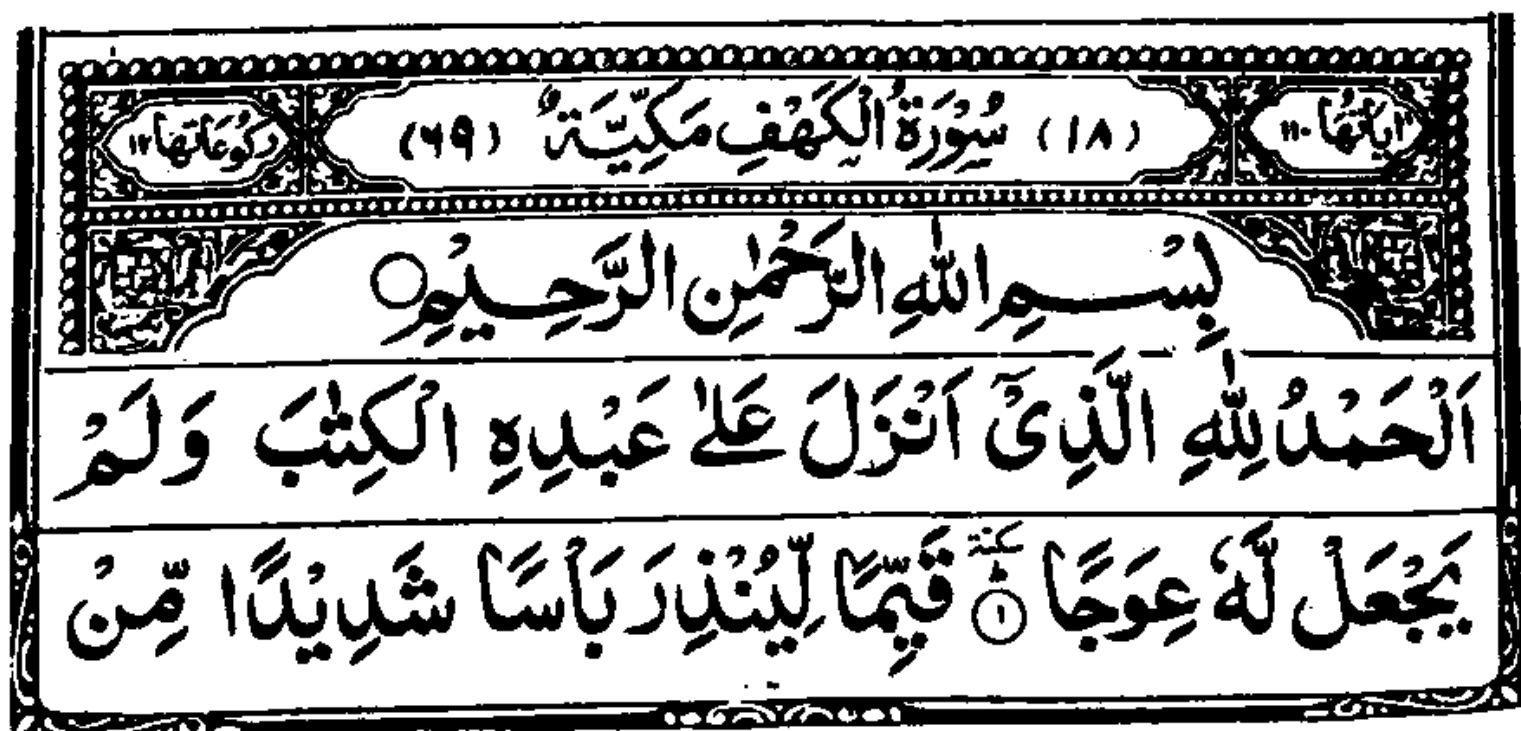 اٰيَاتُهَا ١١٠ (١٨) سُوْرَةُ الْكَهْفِ مَكِّيَّةٌ (٦٩) رُكُوْعَاتُهَا ١٢
بِسْمِ اللّٰهِ الرَّحْمٰنِ الرَّحِيْمِ
اَلْحَمْدُ لِلّٰهِ الَّذِيْۤ اَنْزَلَ عَلٰى عَبْدِهِ الْكِتٰبَ وَلَمْ
يَجْعَلْ لَّهٗ عِوَجًا ؕ سكتة ١ قَيِّمًا لِّيُنْذِرَ بَاْسًا شَدِيْدًا مِّنْ